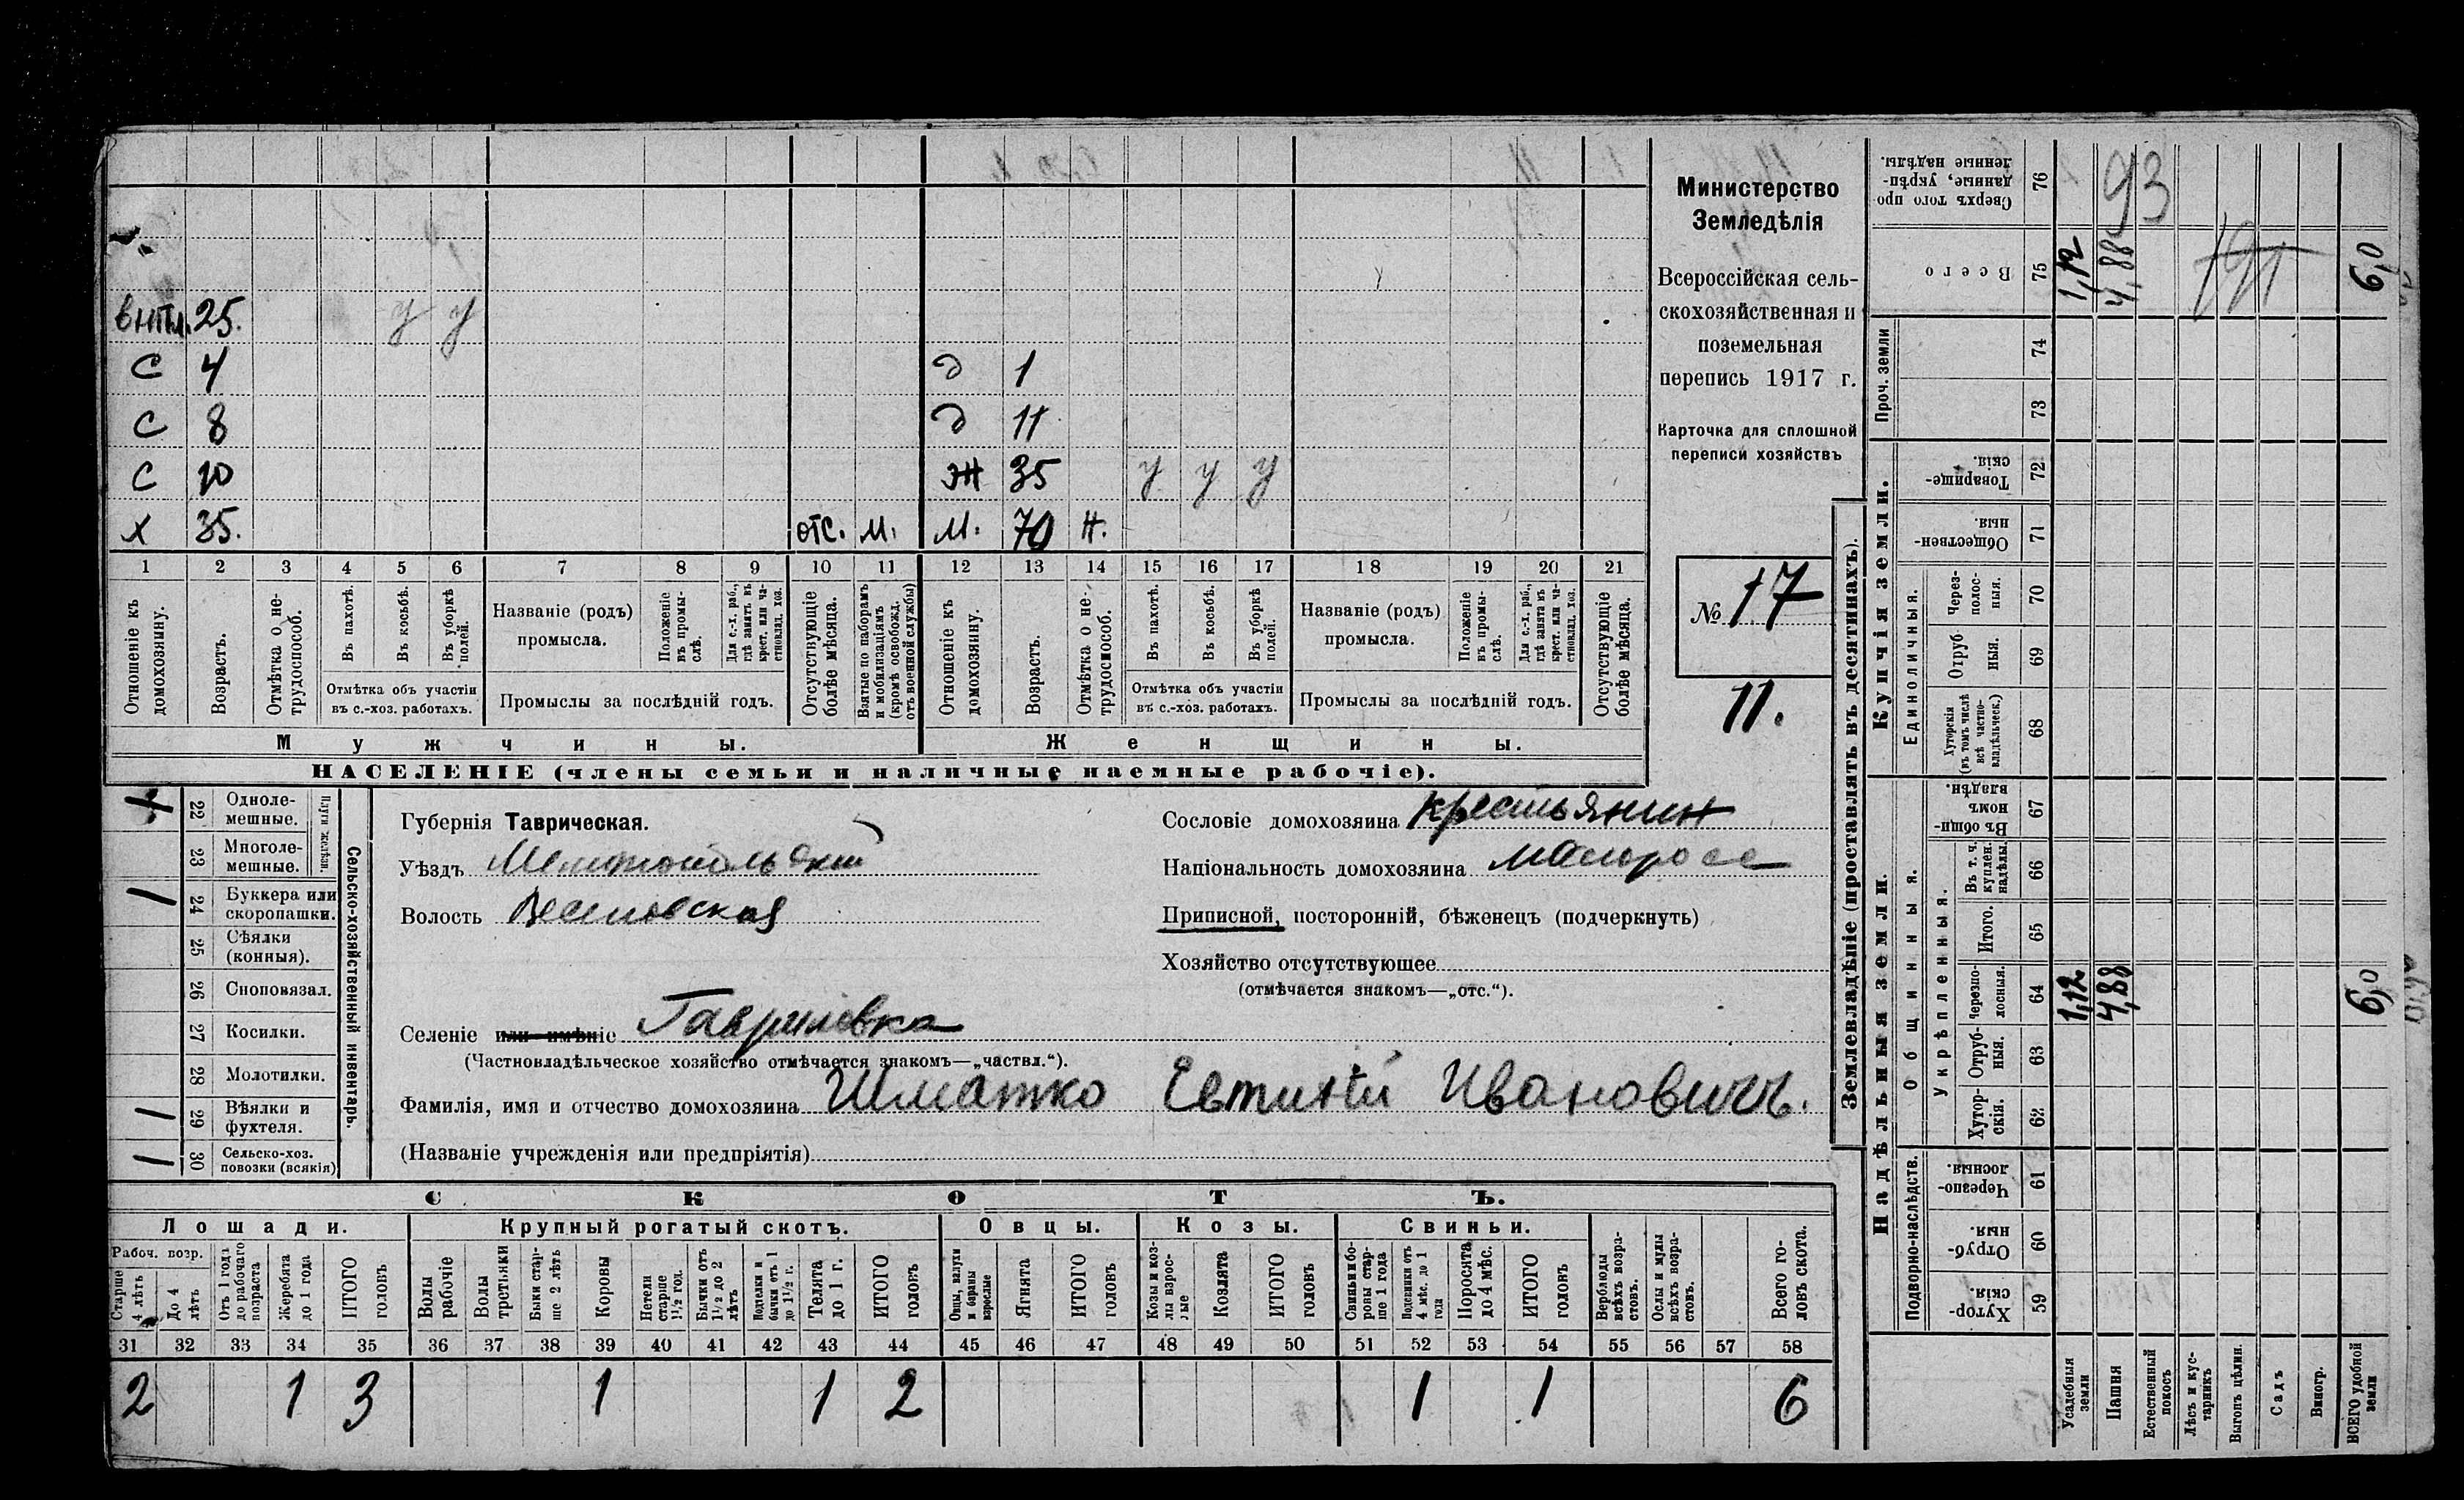 Министерство
Земледѣлія
Всероссійская сель-
скохозяйственная и
поземельная
перепись 1917 г.
Карточка для сплошной
переписи хозяйствъ
№ 17
11.
25. у у
С 4 д 1
С 8 д 11
С 10 Ж 35 у у у
Х 35. отс. м. М. 70 Н.
1 2 3 4 5 6 7 8 9 10 11 12 13 14 15 16 17 18 19 20 21
Отношеніе къ домохозяину.
Возрастъ.
Отмѣтка о не-трудоспособ.
Въ пахотѣ.
Въ косьбѣ.
Въ уборкѣ полей.
Отмѣтка объ участіи въ с.-хоз. работахъ.
Названіе (родъ) промысла.
Положеніе въ промы-слѣ.
Для с.-х. раб., гдѣ занятъ въ крест. или ча-стновлад. хоз.
Промыслы за послѣдній годъ.
Отсутствующіе болѣе мѣсяца.
Взятые по наборамъ и мобилизаціямъ (кромѣ освобожд. отъ военной службы)
Отношеніе къ домохозяину.
Возрастъ.
Отмѣтка о не-трудоспособ.
Въ пахотѣ.
Въ косьбѣ.
Въ уборкѣ полей.
Отмѣтка объ участіи въ с.-хоз. работахъ.
Названіе (родъ) промысла.
Положеніе въ промы-слѣ.
Для с.-х. раб., гдѣ занята въ крест. или ча-стновлад. хоз.
Промыслы за послѣдній годъ.
Отсутствующіе болѣе мѣсяца.
Мужчины. Женщины.
НАСЕЛЕНІЕ (члены семьи и наличные наемные рабочіе).
22 Одноле-мешные.
23 Многоле-мешные.
Плуги желѣзн.
1 24 Буккера или скоропашки.
25 Сѣялки (конныя).
26 Сноповязал.
27 Косилки.
28 Молотилки.
1 29 Вѣялки и фухтеля.
1 30 Сельско-хоз. повозки (всякія)
Сельско-хозяйственный инвентарь.
Губернія Таврическая.
Уѣздъ Мелитопольский
Волость Веселовская
Селеніе или имѣніе Гавриловка
(Частновладѣльческое хозяйство отмѣчается знакомъ—„частвл.“).
Фамилія, имя и отчество домохозяина Шматко Евтихій Ивановичъ.
(Названіе учрежденія или предпріятія)
Сословіе домохозяина крестьянин
Національность домохозяина малоросс
Приписной, посторонній, бѣженецъ (подчеркнуть)
Хозяйство отсутствующее
(отмѣчается знакомъ—„отс.“).
СКОТЪ.
Лошади. Крупный рогатый скотъ. Овцы. Козы. Свиньи.
Рабоч. возр.
Старше 4 лѣтъ
До 4 лѣтъ
Отъ 1 года до рабочаго возраста
Жеребята до 1 года
ИТОГО головъ
Волы рабочіе
Волы третьяки
Быки стар-ше 2 лѣтъ
Коровы
Нетели старше 1½ год.
Бычки отъ 1½ до 2 лѣтъ
Подтелки и бычки отъ 1 до 1½ г.
Телята до 1 г.
ИТОГО головъ
Овцы, валухи и бараны взрослые
Ягнята
ИТОГО головъ
Козы и коз-лы взрос-лые
Козлята
ИТОГО головъ
Свиньи и бо-ровы стар-ше 1 года
Подсвинки отъ 4 мѣс. до 1 года
Поросята до 4 мѣс.
ИТОГО головъ
Верблюды всѣхъ возра-стовъ.
Ослы и мулы всѣхъ возра-стовъ.
Всего го-ловъ скота.
31 32 33 34 35 36 37 38 39 40 41 42 43 44 45 46 47 48 49 50 51 52 53 54 55 56 57 58
2 1 3 1 1 2 1 1 6
Землевладѣніе (проставлять въ десятинахъ).
Надѣльныя земли. Купчія земли. Проч. земли
Подворно-наслѣдств.
Общинныя.
Укрѣпленныя.
Единоличныя.
59 Хутор-скія.
60 Отруб-ныя.
61 Черезпо-лосныя.
62 Хутор-скія.
63 Отруб-ныя.
64 Черезпо-лосныя. 1,12 4,88 6,0
65 Итого.
66 Въ т. ч. куплен. надѣлы.
67 Въ общи-номъ владѣн.
68 Хуторскія (въ томъ числѣ всѣ частно-владѣльческ.)
69 Отруб-ныя.
70 Через-полос-ныя.
71 Обществен-ныя.
72 Товарище-скія.
73
74
75 Всего 1,12 4,88 6,0
76 Сверхъ того про-данные, укрѣп-ленные надѣлы.
93
Усадебныя земли
Пашня
Естественный покосъ
Лѣсъ и кус-тарникъ
Выгонъ цѣлин.
Садъ
Виногр.
ВСЕГО удобной земли